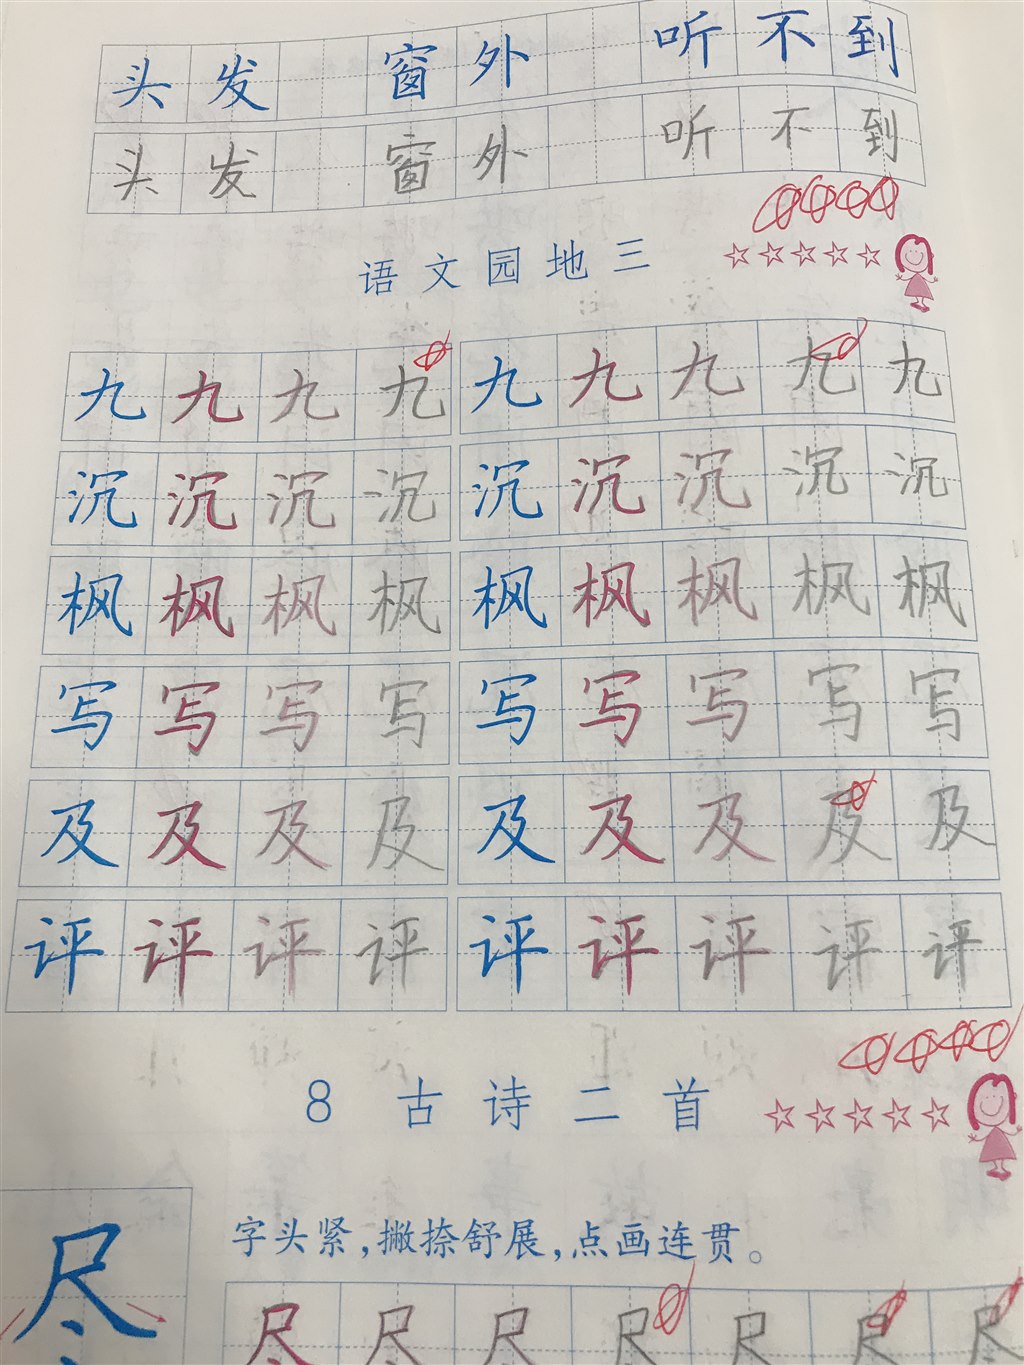 头发 窗外 听不到
头发 窗外 听不到
语文园地三
九九九九九九九九九
沉沉沉沉沉沉沉沉沉
枫枫枫枫枫枫枫枫枫
写写写写写写写写写
及及及及及及及及及
评评评评评评评评评
8 古诗二首
字头紧，撇捺舒展，点画连贯。
尽尽尽尽尽尽尽尽